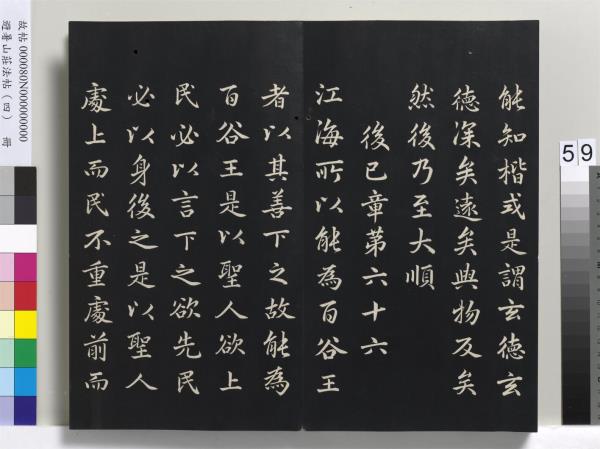 能知楷式是謂玄德玄
德深矣遠矣與物反矣
然後乃至大順
後己章第六十六
江海所以能為百谷王
者以其善下之故能為
百谷王是以聖人欲上
民必以言下之欲先民
必以身後之是以聖人
處上而民不重處前而
故帖 000080N000000000
避暑山莊法帖（四） 冊
59